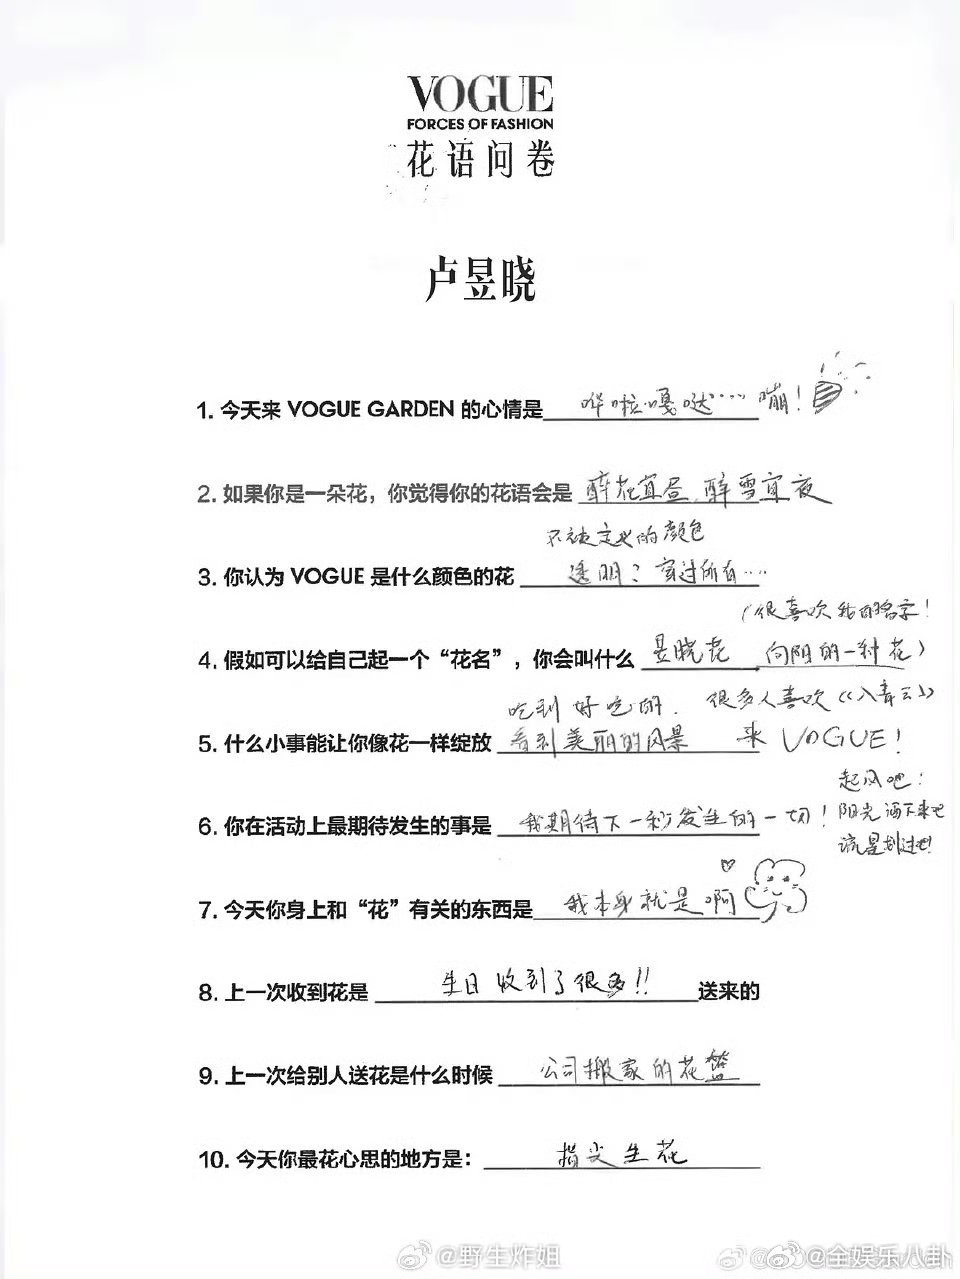 VOGUE
FORCES OF FASHION
花语问卷
卢昱晓
1. 今天来 VOGUE GARDEN 的心情是 哗啦嘎哒····嘣！
2. 如果你是一朵花，你觉得你的花语会是 醉花宜昼，醉雪宜夜
不被定义的颜色
3. 你认为 VOGUE 是什么颜色的花 透明？穿过所有····
（很喜欢我的名字！
4. 假如可以给自己起一个“花名”，你会叫什么 昱晓花 向阳的一种花）
吃到好吃的. 很多人喜欢《入青云》
5. 什么小事能让你像花一样绽放 看到美丽的风景 来VOGUE！
起风吧！
6. 你在活动上最期待发生的事是 我期待下一秒发生的一切！ 阳光洒下来吧
流星划过吧！
7. 今天你身上和“花”有关的东西是 我本身就是啊
8. 上一次收到花是 生日收到了很多!! 送来的
9. 上一次给别人送花是什么时候 公司搬家的花篮
10. 今天你最花心思的地方是： 指尖生花
@野生炸姐
@全娱乐八卦